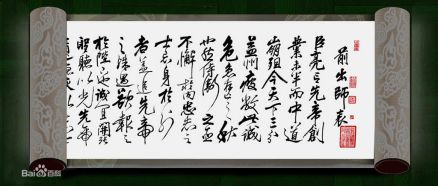 前出師表
臣亮言先帝創
業未半而中道
崩殂今天下三分
益州疲敝此誠
危急存亡之秋
也然侍衛之臣
不懈於內忠志之
士忘身於外
者蓋追先帝
之殊遇欲報之
於陛下也誠宜開張
聖聽以光先帝
Bai百科